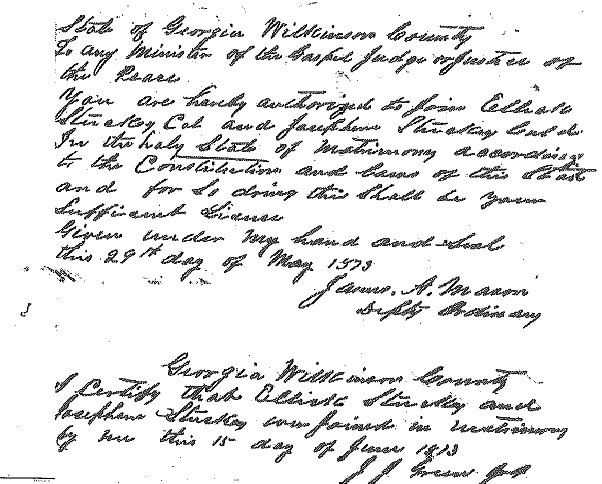 State of Georgia Wilkinson County
To any Minister of the Gospel Judge or Justice of
the Peace
You are hereby authorized to Join Elliott
Stuckey Col and Josephine Stuckey
In the holy State of Matrimony according
to the Constitution and Laws of this State
and for So doing this Shall be your
Sufficient License
Given under My hand and Seal
this 29th day of May 1873
James. A. Mason
Depty Ordinary
Georgia Wilkinson County
I Certify that Elliott Stuckey and
Josephine Stuckey were Joined in matrimony
by me this 15 day of June 1873
J J Green JP